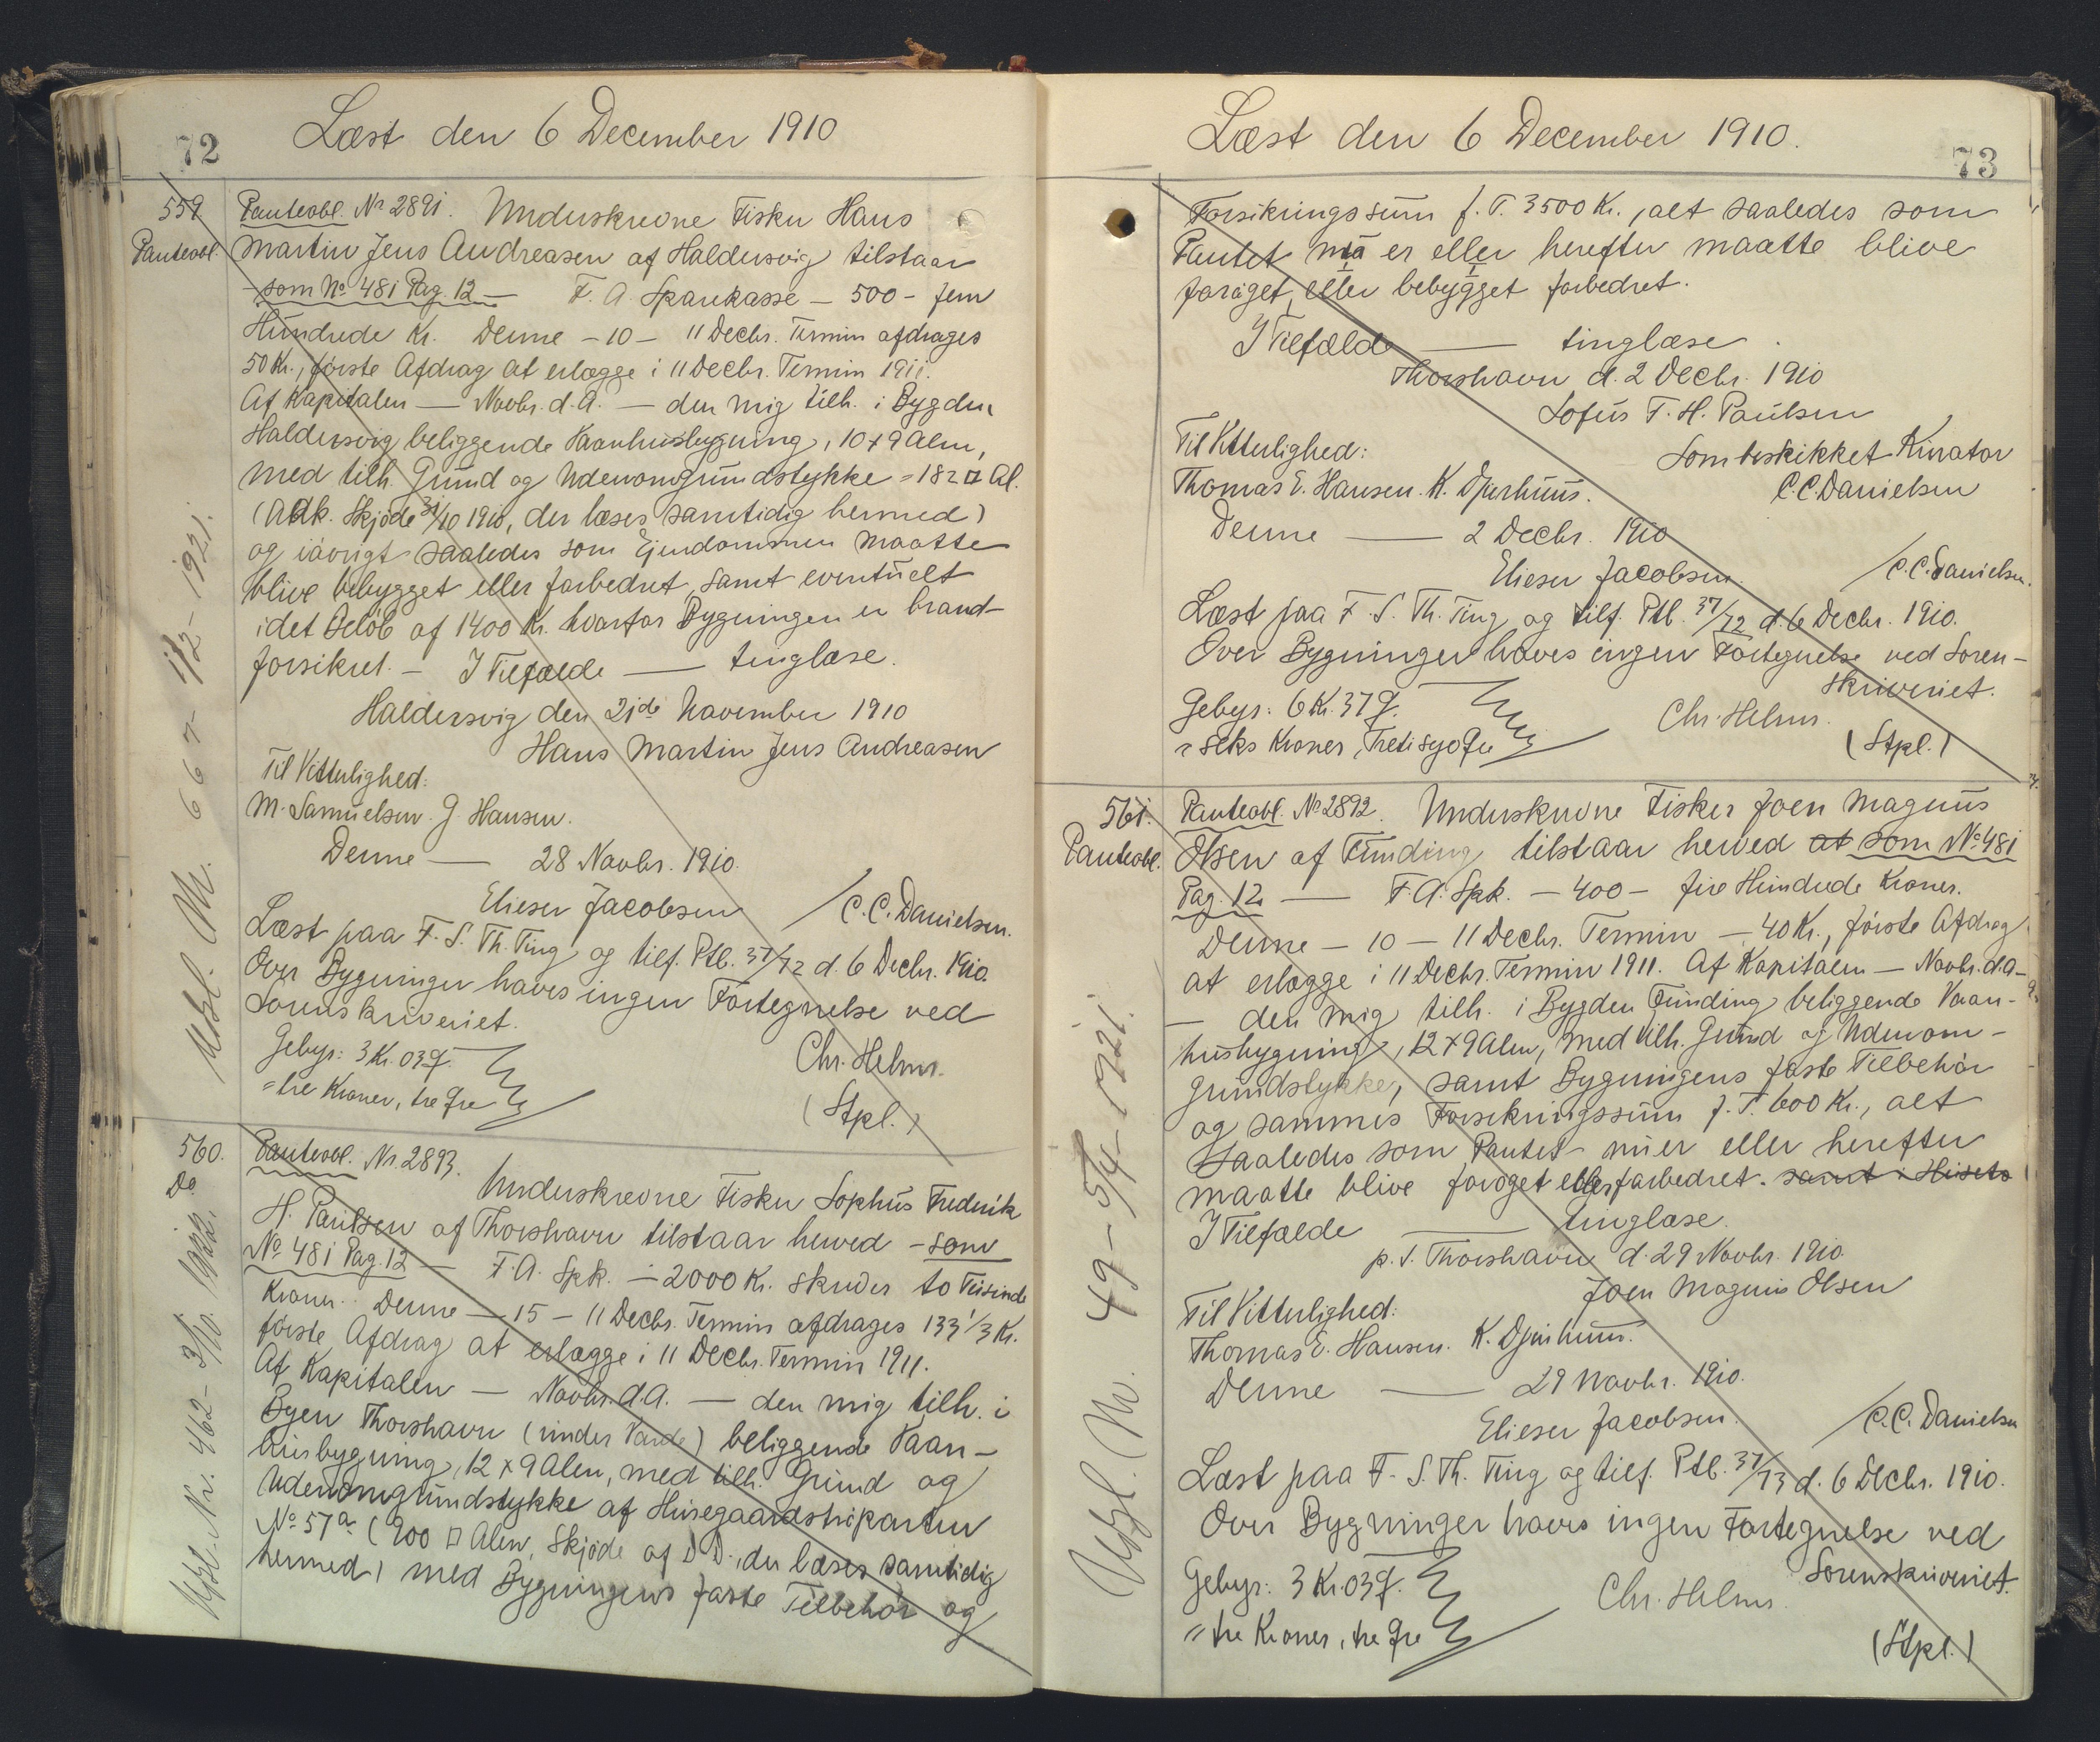 72
Læst den 6 December 1910
559.
Panteobl.
Panteobl. No 2891. Underskrevne Fisker Hans
Martin Jens Andreasen af Haldersvig tilstaar
- som No 481 Pag. 12 — F. A. Sparekasse - 500 - fem
Hundrede Kr. Denne - 10 - 11 Decbr. Termin afdrages
50 Kr., første Afdrag at erlægge i 11 Decbr. Termin 1911.
Af Kapitalen — Novbr. d. A. — den mig tilh. i Bygden
Haldersvig beliggende Vaanhusbygning, 10 x 9 Alen,
med tilh. Grund og Udenomgrundstykke = 182 □ Al.
(Adk. Skjøde 31/10 1910, der læses samtidig hermed)
og iøvrigt saaledes som Ejendommen maatte
blive bebygget eller forbedret, samt eventuelt
i det Beløb af 1400 Kr. hvorfor Bygningen er brand-
forsikret. - I Tilfælde — tinglæse.
Haldersvig den 21de November 1910
Hans Martin Jens Andreasen
Til Vitterlighed:
M. Samuelsen. J. Hansen.
Denne — 28 Novbr. 1910.
Elieser Jacobsen / C. C. Danielsen.
Læst paa F. S. Th. Ting og tilf. Ptb. 37/72 d. 6 Decbr. 1910.
Over Bygninger haves ingen Fortegnelse ved
Sorenskriveriet.
Gebyr: 3 Kr. 03 Ø.
= tre Kroner, tre Øre
Chr. Helms.
(Stpl.)
Udsl. Nr. 667 - 1/2 - 1921.
560.
Do
Panteobl. Nr. 2893. Underskrevne Fisker Sophus Frederik
H. Paulsen af Thorshavn tilstaar herved - som
No 481 Pag. 12 — F. A. Spk. - 2000 Kr. skriver to Tusinde
Kroner. Denne - 15 - 11 Decbr. Termin afdrages 133 1/3 Kr.
første Afdrag at erlægge i 11 Decbr. Termin 1911.
Af Kapitalen — Novbr. d. A. — den mig tilh. i
Byen Thorshavn (under Varde) beliggende Vaan-
husbygning, 12 x 9 Alen, med tilh. Grund og
Udenomgrundstykke af Husegaardstriparten
No 57a (900 □ Alen, Skjøde af D. D., der læses samtidig
hermed) med Bygningens faste Tilbehør og
Udsl. Nr. 462 - 3/10. 1922.
Læst den 6 December 1910.
73
Forsikringssum f. T. 3500 Kr., alt saaledes som
Pantet nu er eller herefter maatte blive
forøget, eller bebygget forbedret.
I Tilfælde — tinglæse.
Thorshavn d. 2 Decbr. 1910
Sofus F. H. Paulsen
Til Vitterlighed:
Som beskikket Kurator
Thomas E. Hansen. K. Djurhuus.
C. C. Danielsen
Denne — 2 Decbr. 1910
Elieser Jacobsen. / C. C. Danielsen.
Læst paa F. S. Th. Ting og tilf. Ptb. 37/72 d. 6 Decbr. 1910.
Over Bygninger haves ingen Fortegnelse ved Soren-
skriveriet.
Gebyr: 6 Kr. 37 Ø.
= seks Kroner, Tretisyv Øre
Chr. Helms.
(Stpl.)
561.
Panteobl.
Panteobl. No 2892. Underskrevne Fisker Joen Magnus
Olsen af Funding tilstaar herved at som No 481
Pag. 12 — F. A. Spk. - 400 - fire Hundrede Kroner.
Denne - 10 - 11 Decbr. Termin - 40 Kr., første Afdrag
at erlægge i 11 Decbr. Termin 1911. Af Kapitalen - Novbr. d. A -
— den mig tilh. i Bygden Funding beliggende Vaan-
husbygning, 12 x 9 Alen, med tilh. Grund og Udenom-
grundstykke, samt Bygningens faste Tilbehør
og sammes Forsikringssum f. T. 600 Kr., alt
saaledes som Pantet nu er eller herefter
maatte blive forøget eller forbedret. samt i Husets
I Tilfælde — tinglæse.
p. T. Thorshavn d. 29 Novbr. 1910.
Joen Magnus Olsen
Til Vitterlighed:
Thomas E. Hansen. K. Djurhuus.
Denne — 29 Novbr. 1910.
Elieser Jacobsen. / C. C. Danielsen
Læst paa F. S. Th. Ting og tilf. Ptb. 37/73 d. 6 Decbr. 1910.
Over Bygninger haves ingen Fortegnelse ved
Sorenskriveriet.
Gebyr: 3 Kr. 03 Ø.
= tre Kroner, tre Øre
Chr. Helms.
(Stpl.)
Udsl. Nr. 49 - 5/4 - 1921.